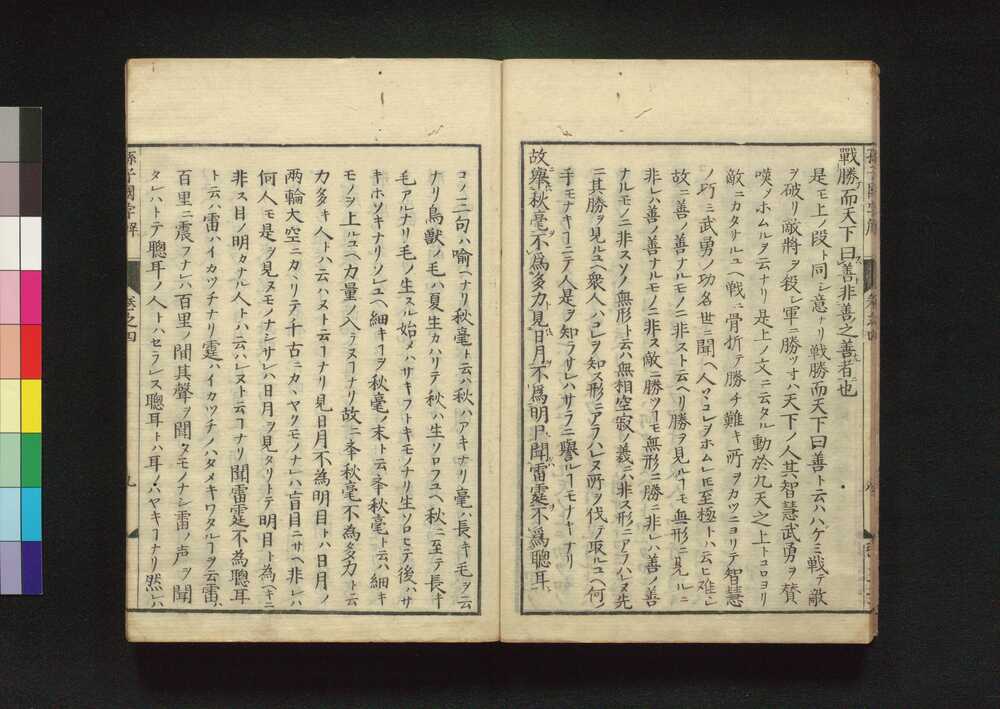 戰勝而天下曰善非善之善者也
是モ上ノ段ト同シ意ナリ戦勝而天下曰善ト云ハハゲミ戦テ敵
ヲ破リ敵將ヲ殺シ軍ニ勝ツヿハ天下ノ人其智慧武勇ヲ賛
嘆ノホムルヲ云ナリ是上ノ文ニ云タル動於九天之上トコロヨリ
敵ニカタサルユヘ戦ニ骨折テ勝チ難キ所ヲカツニヨリテ智慧
ノ巧ニ武勇ノ功名世ニ聞ヘ人々コレヲホムレ𪜈至極トハ云ヒ難シ
故ニ善ノ善ナルモノニ非スト云ヘリ勝ヲ見ルヿモ無形ニ見ルニ
非レハ善ノ善ナルモノニ非ス敵ニ勝ツヿモ無形ニ勝ニ非レハ善ノ善
ナルモノニ非スソノ無形ト云ハ無相空寂ノ義ニハ非ス形ニアラハレヌ先
ニ其勝ヲ見ルユヘ衆人ハコレヲ知ス形ニアラハレヌ所ヲ伐テ取ルユヘ何ノ
手モナキヿニテ人是ヲ知ラサレハサラニ譽ルヿモナキナリ
故舉秋毫不爲多力見日月不爲明目聞雷霆不爲聰耳
コノ三句ハ喩ヘナリ秋毫ト云ハ秋ハアキナリ毫ハ長キ毛ヲ云
ナリ鳥獸ノ毛ハ夏生カハリテ秋ハ生ソロフユヘ秋ニ至テ長キ
毛アルナリ毛ノ生スル始メハサキフトキモノナリ生ソロヒテ後ハサ
キホソキナリソレユヘ細キヿヲ秋毫ノ末ト云舉秋毫ト云ハ細キ
モノヲ上ルユヘ力量ノ入ラヌヿナリ故ニ舉秋毫不為多力ト云
力多キ人トハ云ハヌト云ヿナリ見日月不為明目トハ日月ノ
両輪大空ニカヽリテ千古ニカヽヤクモノナレハ盲目ニサヘ非レハ
何人モ是ヲ見ヌモノナシサレハ日月ヲ見タリトテ明目ト為ヘキニ
非ス目ノ明カナル人トハ云ハレヌト云ヿナリ聞雷霆不為聰耳
ト云ハ雷ハイカツチナリ霆ハイカツチノハタメキワタルヿヲ云雷ハ
百里ニ震フナレハ百里ノ間其聲ヲ聞ヌモノナシ雷ノ声ヲ聞
タレハトテ聰耳ノ人トハセラレス聰耳トハ耳ノハヤキヿナリ然レハ
孫子國字解
卷之四
九